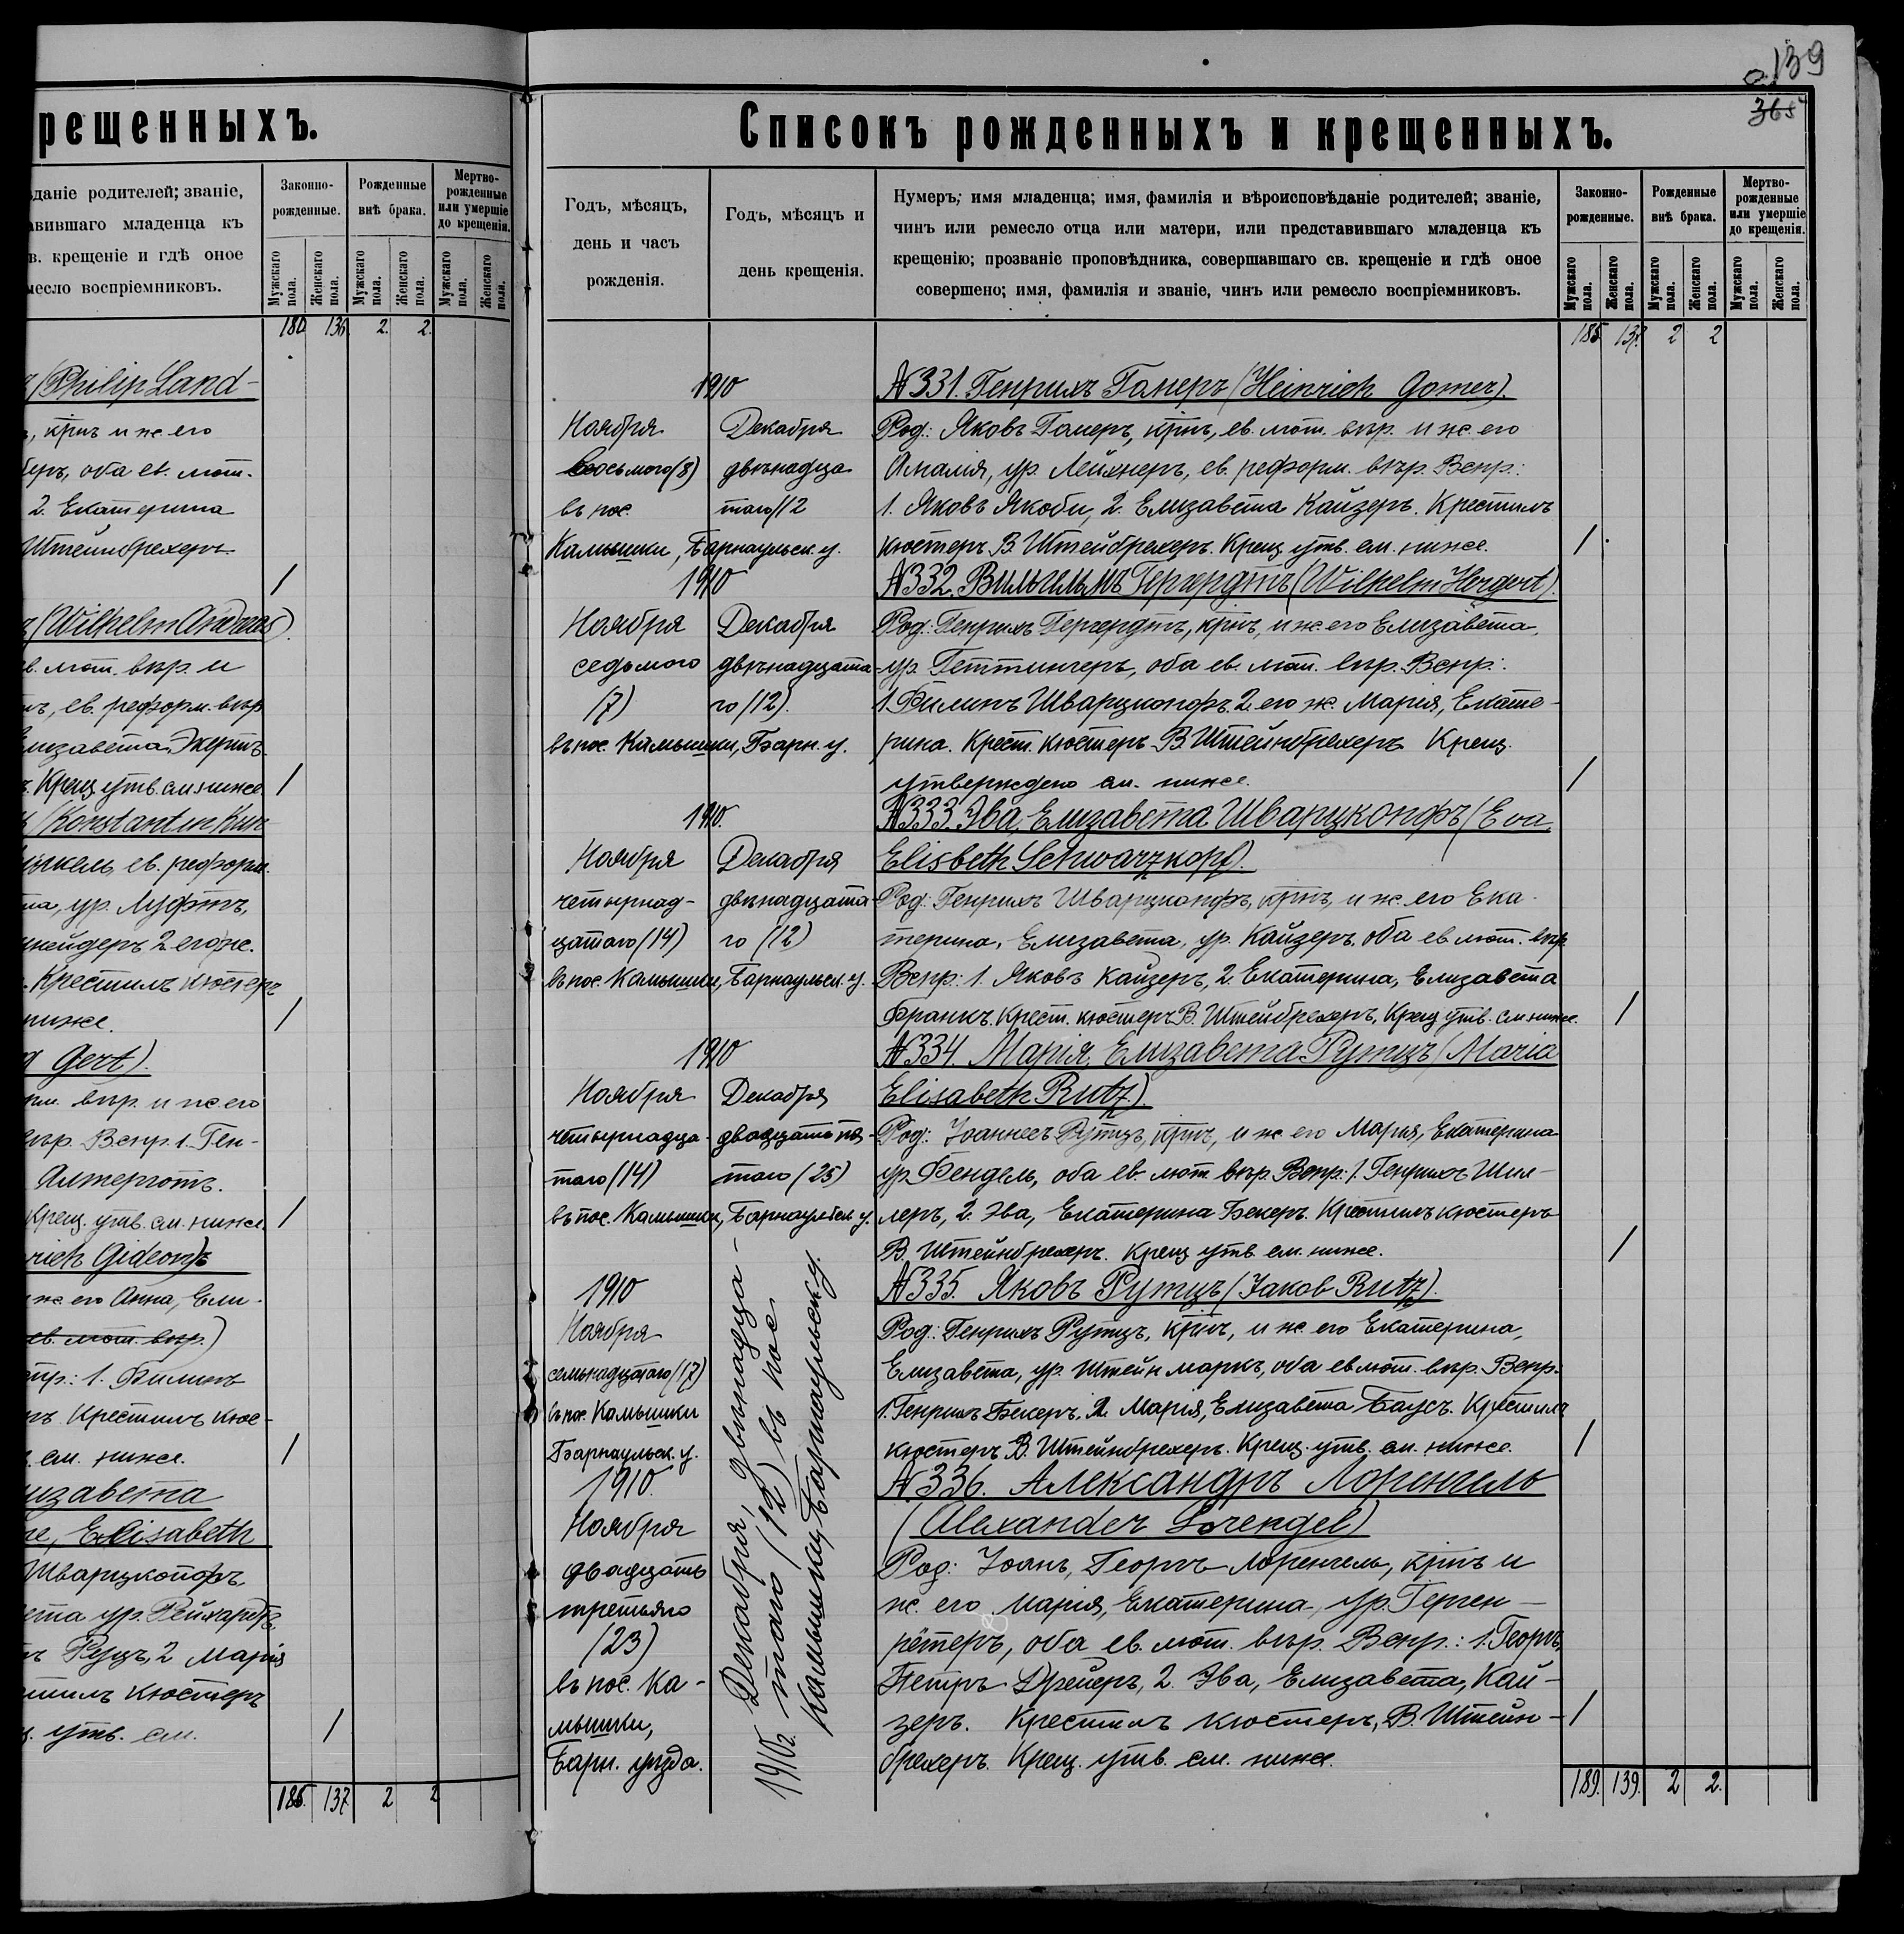 рещенныхъ.
даніе родителей; званіе,
авившаго младенца къ
в. крещеніе и гдѣ оное
месло воспріемниковъ.
Законно-
рожденные.
Рожденные
внѣ брака.
Мертво-
рожденные
или умершіе
до крещенія.
Мужскаго пола.
Женскаго пола.
Мужскаго пола.
Женскаго пола.
Мужскаго пола.
Женскаго пола.
180 136 2. 2.
(Philip Land-
, крнъ и ж. его
беръ, оба ев. лют.
2. Екатерина
Штейнбрехеръ.
/
(Wilhelm Andreas).
в. лют. вѣр. и
ъ, ев. реформ. вѣр
Елизавета, Экертъ.
Крещ. утв. см. ниже /
(Konstantin Kun
нкель, ев. реформ.
на, ур. Луфтъ,
нейдеръ 2. его ж.
Крестилъ кюстеръ
ниже. /
Gert).
рм. вѣр. и ж. его
вѣр. Вспр. 1. Ген-
Алтерготъ.
Крещ. утв. см. ниже /
rich Gideon)
ж. его Анна, Ели-
ев. лют. вѣр.)
пр.: 1. Филипъ
ъ Крестилъ кюс-
см. ниже. /
изавета
ne, Elisabeth
Шварцкопфъ,
ета ур. Рейхардтъ,
ъ Руцъ, 2 Марія
тилъ кюстеръ
утв. см. /
185. 137 2 2
139
365
Списокъ рожденныхъ и крещенныхъ.
Годъ, мѣсяцъ,
день и часъ
рожденія.
Годъ, мѣсяцъ и
день крещенія.
Нумеръ; имя младенца; имя, фамилія и вѣроисповѣданіе родителей; званіе,
чинъ или ремесло отца или матери, или представившаго младенца къ
крещенію; прозваніе проповѣдника, совершавшаго св. крещеніе и гдѣ оное
совершено; имя, фамилія и званіе, чинъ или ремесло воспріемниковъ.
Законно-
рожденные.
Рожденные
внѣ брака.
Мертво-
рожденные
или умершіе
до крещенія.
Мужскаго пола.
Женскаго пола.
Мужскаго пола.
Женскаго пола.
Мужскаго пола.
Женскаго пола.
185 137. 2 2
1910 №331. Генрихъ Гомеръ (Heinrich Gomer).
Ноября Декабря Род: Яковъ Гомеръ, крнъ, ев. лют. вѣр. и ж. его
восьмого (8) двѣнадца Амалія, ур. Лейхнеръ, ев. реформ. вѣр. Вспр.:
въ пос. таго/12 1. Яковъ Якоби, 2. Елизавета Кайзеръ. Крестилъ
Камышки, Барнаульск. у. кюстеръ В. Штейбрехеръ. Крещ. утв. см. ниже. /
1910 №332. Вильгельмъ Гергердтъ (Wilhelm Hergert).
Ноября Декабря Род: Генрихъ Гергердтъ, крнъ, и ж. его Елизавета,
седьмого двѣнадцата- ур. Геттингеръ, оба ев. лют. вѣр. Вспр.:
(7) го (12). 1. Филипъ Шварцкопфъ. 2. его ж. Марія, Екате-
въ пос. Камышки, Барн. у. рина. Крест. кюстеръ В. Штейнбрехеръ Крещ.
утверждено см. ниже. /
1910. №333. Эва, Елизавета Шварцкопфъ (Eva,
Ноября Декабря Elisbeth Schwarzkopf).
четырнад- двѣнадцата Род: Генрихъ Шварцкопфъ, крнъ, и ж. его Ека-
цатаго (14) го (12) терина, Елизавета, ур. Кайзеръ, оба ев. лют. вѣр
въ пос. Камышки, Барнаульск. у. Вспр: 1. Яковъ Кайзеръ, 2. Екатерина, Елизавета
Франкъ. Крест. кюстеръ В. Штейбрехеръ, Крещ. утв. см. ниже. /
1910 №334. Марія, Елизавета Рутцъ (Maria
Ноября Декабря Elisabeth Rutz).
четырнадца- двадцать пя- Род: Іоаннесъ Рутцъ, крнъ, и ж. его Марія, Екатерина
таго (14) таго (25) ур. Бендель, оба ев. лют. вѣр. Вспр: 1. Генрихъ Шил-
въ пос. Камышки, Барнаульск. у. леръ, 2. Эва, Екатерина Бекеръ. Крестилъ кюстеръ
В. Штейнбрехеръ. Крещ. утв. см. ниже. /
1910 №335. Яковъ Рутцъ (Jakob Rutz).
Ноября Род: Генрихъ Рутцъ, крнъ, и ж. его Екатерина,
семнадцатаго (17) Елизавета, ур. Штейнмаркъ, оба ев лют. вѣр. Вспр.
въ пос. Камышки 1. Генрихъ Бекеръ. 2. Марія, Елизавета Баусъ. Крестилъ
Барнаульск. у. кюстеръ В. Штейнбрехеръ. Крещ. утв. см. ниже. /
1910. №336. Александръ Лоренгель
Ноября (Alexander Lorengel)
двадцать Род: Іоанъ, Георгъ Лоренгель, крнъ и
третьяго ж. его Марія, Екатерина, ур. Герген-
(23) рётеръ, оба ев. лют. вѣр. Вспр.: 1. Георгъ,
въ пос. Ка- Петръ Дрейеръ, 2. Эва, Елизавета, Кай-
мышки, зеръ. Крестилъ кюстеръ, В. Штейн- /
Барн. уѣзда. брехеръ. Крещ. утв. см. ниже.
1910г. Декабря, двѣнадца-
таго (12) въ пос.
Камышки, Барнаульск. у.
189. 139. 2 2.